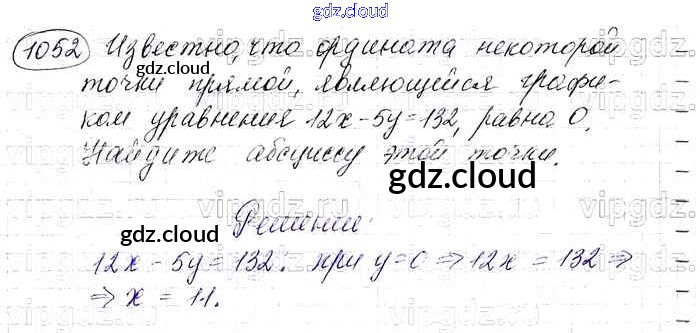 gdz.cloud
1052 Известно, что ордината некоторой
gdz.cloud
точки прямой, являющейся графи-
gdz.cloud
ком уравнения 12x - 5y = 132, равна 0.
Найдите абсциссу этой точки.
gdz.cloud
Решение:
gdz.cloud
12x - 5y = 132. при y = 0 ⇒ 12x = 132 ⇒
⇒ x = 11.